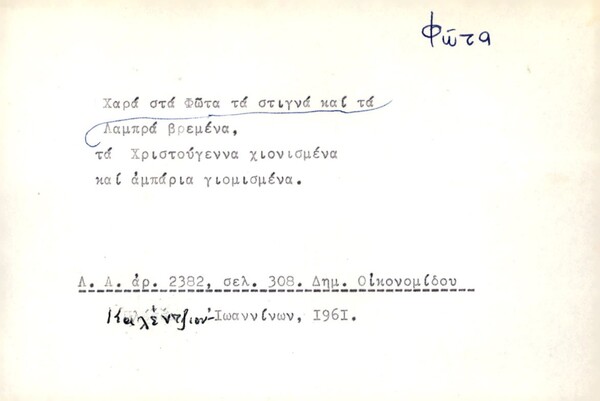 Φῶτα
Χαρά στά Φῶτα τά στιγνά καί τά
Λαμπρά βρεμένα,
τά Χριστούγεννα χιονισμένα
καί ἀμπάρια γιομισμένα.
Λ. Α. ἀρ. 2382, σελ. 308. Δημ. Οἰκονομίδου
Καλέντζιον Ἰωαννίνων, 1961.